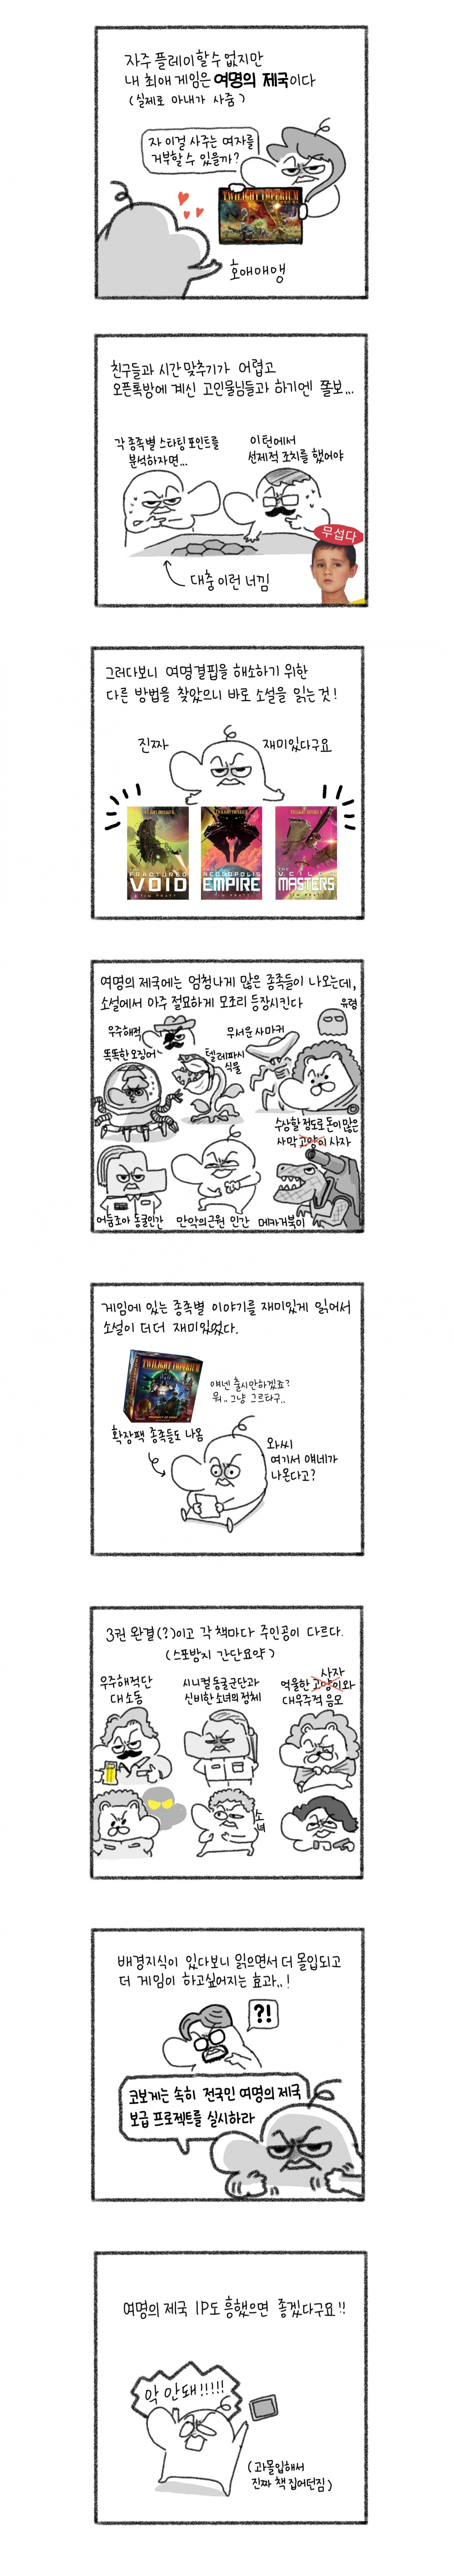 자주 플레이할 수 없지만
내 최애 게임은 여명의 제국이다
(실제로 아내가 사줌)
자 이걸 사주는 여자를
거부할 수 있을까?
TWILIGHT IMPERIUM
호애애앵
친구들과 시간 맞추기가 어렵고
오픈톡방에 계신 고인물님들과 하기엔 쫄보...
각 종족별 스타팅 포인트를
분석하자면...
이턴에서
선제적 조치를 했어야
무섭다
대충 이런 너낌
그러다보니 여명결핍을 해소하기 위한
다른 방법을 찾았으니 바로 소설을 읽는 것!
진짜
재미있다구요
TWILIGHT IMPERIUM
THE
FRACTURED
VOID
TIM PRATT
TWILIGHT IMPERIUM
THE
NECROPOLIS
EMPIRE
TIM PRATT
TWILIGHT IMPERIUM
THE
VEILED
MASTERS
TIM PRATT
여명의 제국에는 엄청나게 많은 종족들이 나오는데,
소설에서 아주 절묘하게 모조리 등장시킨다
유령
우주해적
무서운 사마귀
똑똑한 오징어
텔레파시
식물
수상할 정도로 돈이 많은
사막 고양이 사자
어둠조아 동굴인간
만악의 근원 인간
메카거북이
게임에 있는 종족별 이야기를 재미있게 읽어서
소설이 더더 재미있었다.
TWILIGHT IMPERIUM
얘넨 출시안하겠죠?
뭐.. 그냥 그르타구..
확장팩 종족들도 나옴
와씨
여기서 얘네가
나온다고?
3권 완결(?)이고 각 책마다 주인공이 다르다.
(스포방지 간단요약)
우주해적단
대소동
시니컬 동굴군단과
신비한 소녀의 정체
사자
억울한 고양이와
대우주적 음모
소녀
배경지식이 있다보니 읽으면서 더 몰입되고
더 게임이 하고싶어지는 효과..!
?!
코보게는 속히 전국민 여명의 제국
보급 프로젝트를 실시하라
여명의 제국 IP도 흥했으면 좋겠다구요!!
악 안돼!!!!!
(과몰입해서
진짜 책 집어던짐)